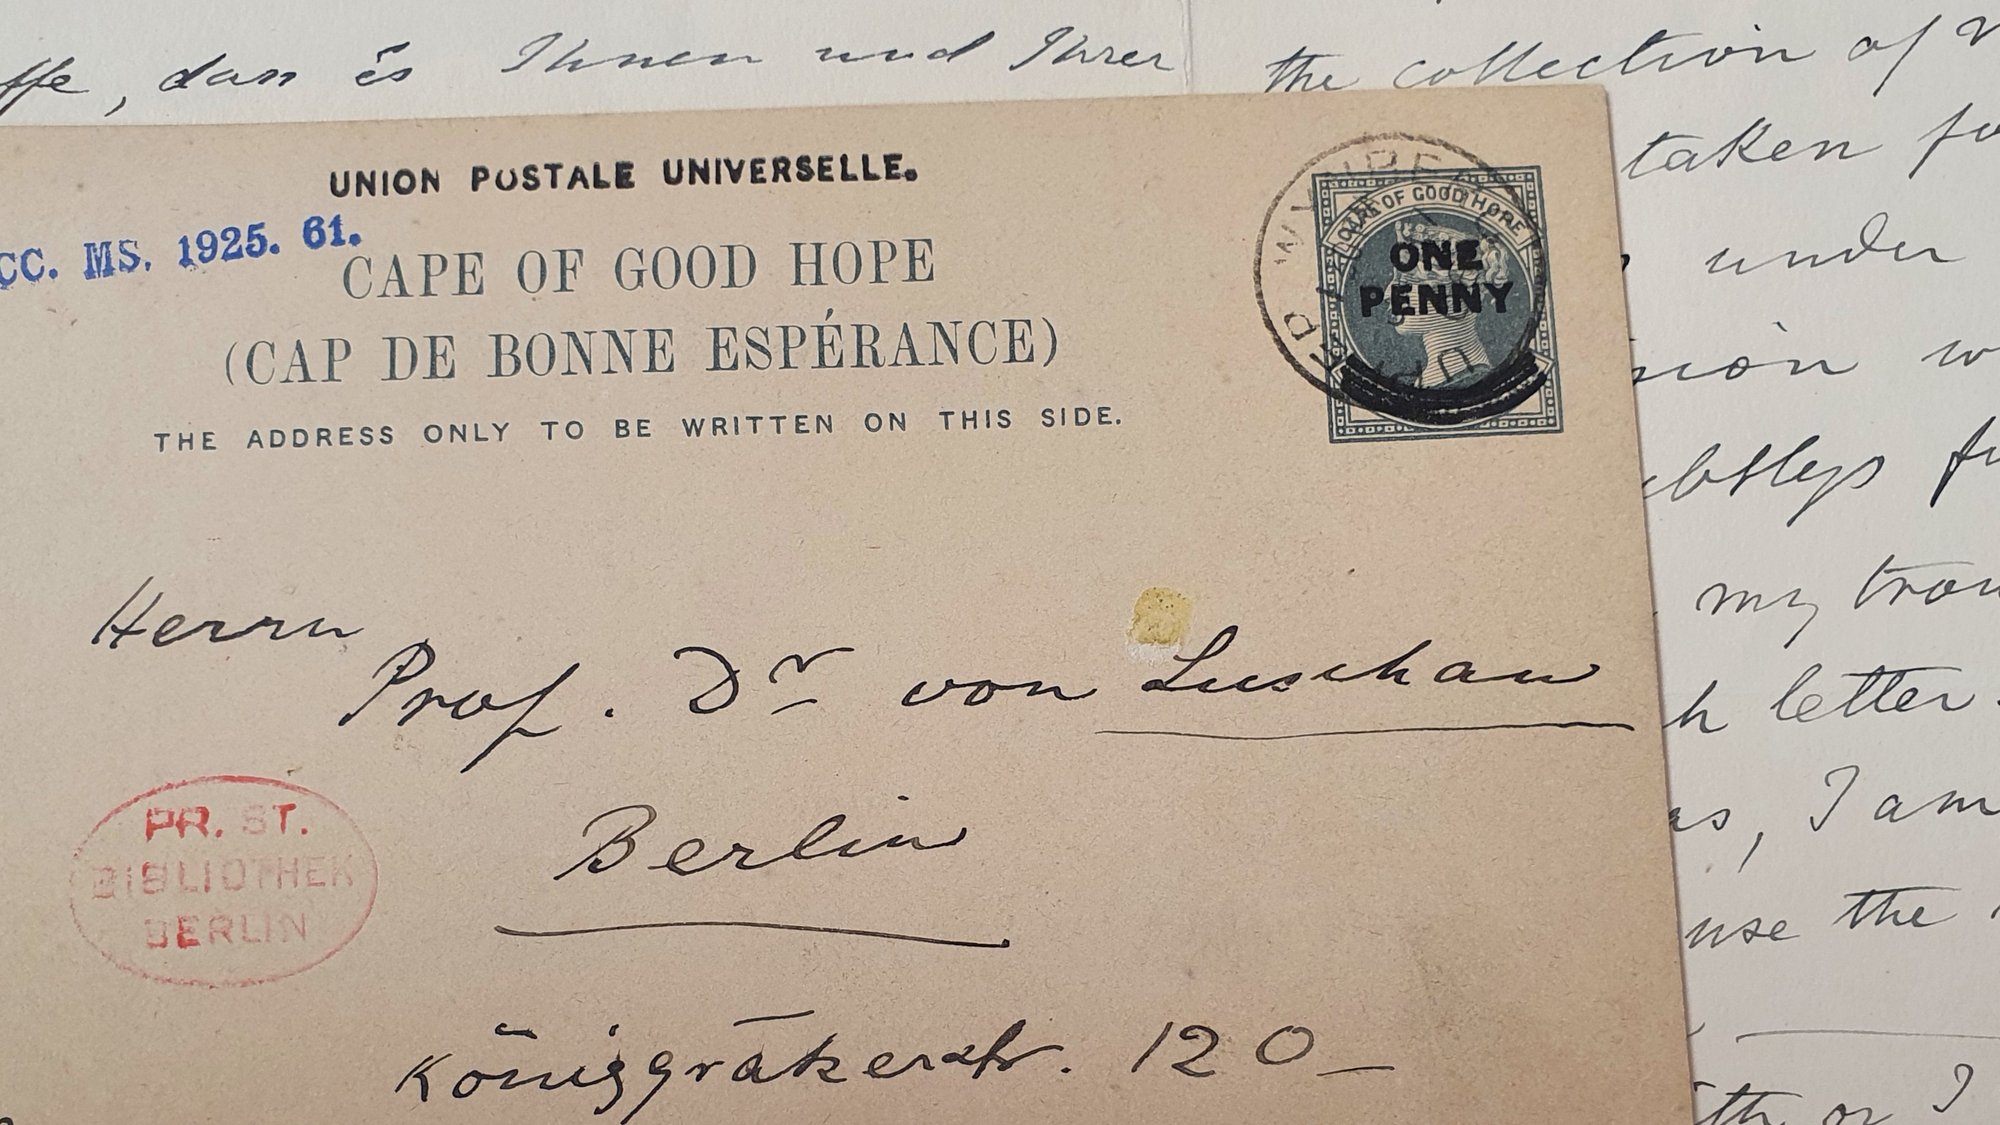 , dan es Ihnen und Ihrer
the collection of
taken
under
UNION POSTALE UNIVERSELLE.
CC. MS. 1925. 61.
CAPE OF GOOD HOPE
(CAP DE BONNE ESPÉRANCE)
THE ADDRESS ONLY TO BE WRITTEN ON THIS SIDE.
CAPE OF GOOD HOPE
ONE
PENNY
Herrn
Prof. Dr von Luschan
Berlin
Königgrätzerstr. 120
PR. ST.
BIBLIOTHEK
BERLIN
my
letter
, I am
use the
or I